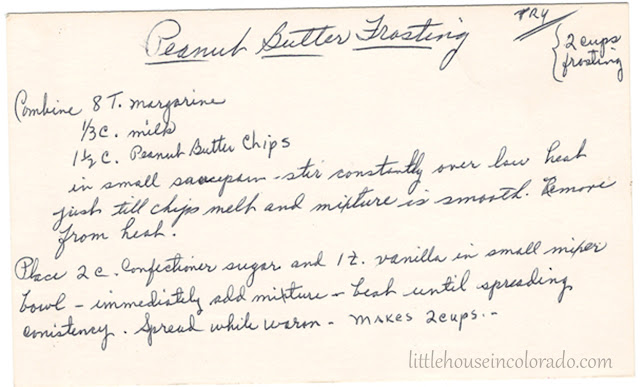 TRY
Peanut Butter Frosting
{2 cups
frosting
Combine 8 T. margarine
1/3 c. milk
1 1/2 c. Peanut Butter Chips
in small saucepan - stir constantly over low heat
just till chips melt and mixture is smooth. Remove
from heat.
Place 2 c. Confectioner sugar and 1 t. vanilla in small mixer
bowl - immediately add mixture - beat until spreading
conistency. Spread while warm - MAKES 2 cups. -
littlehouseincolorado.com